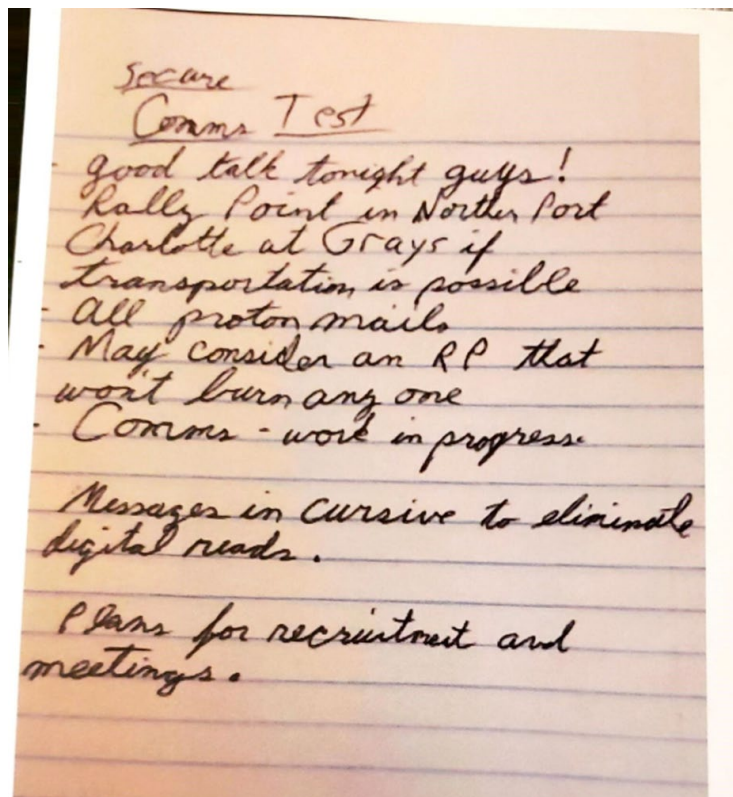 Secure
Comms Test
- good talk tonight guys!
Rally Point in Norther Port
Charlotte at Grays if
transportation is possible
- All proton mails
- May consider an RP that
won't burn any one
- Comms - work in progress.
Messages in cursive to eliminate
digital reads.
Plans for recruitment and
meetings.